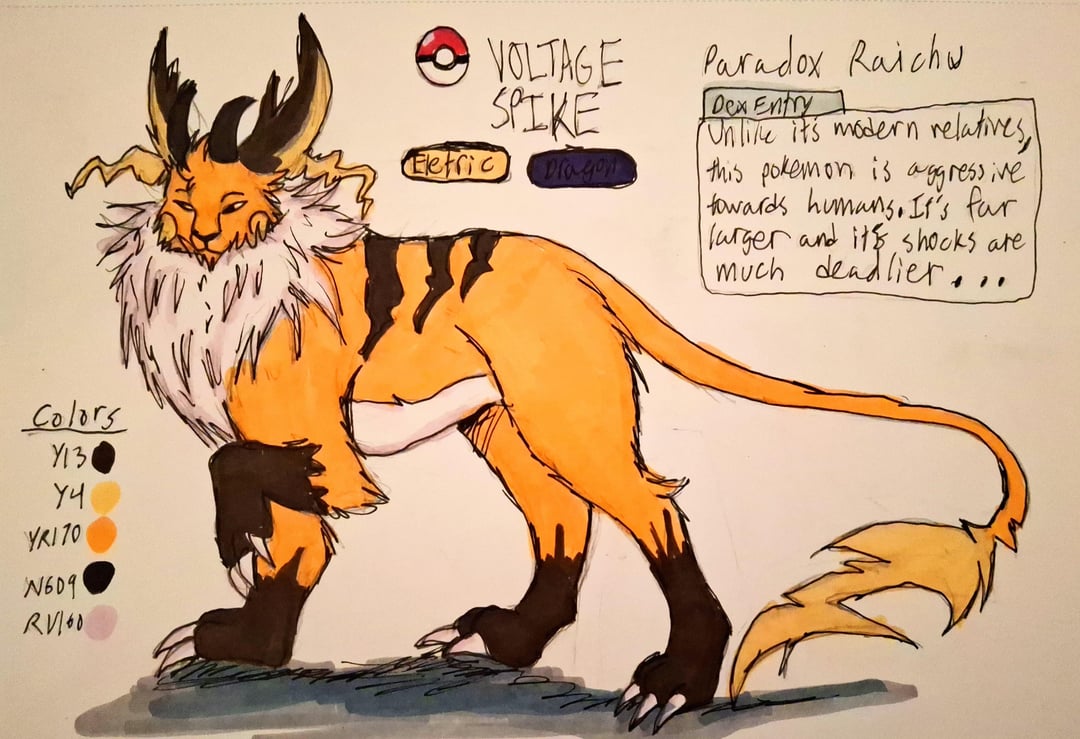 VOLTAGE
SPIKE
Eletric
Dragon
Paradox Raichu
Dex Entry
Unlike it's modern relatives,
this pokemon is aggressive
towards humans. It's far
larger and it's shocks are
much deadlier...
Colors
Y13
Y4
YR170
NG09
RV160